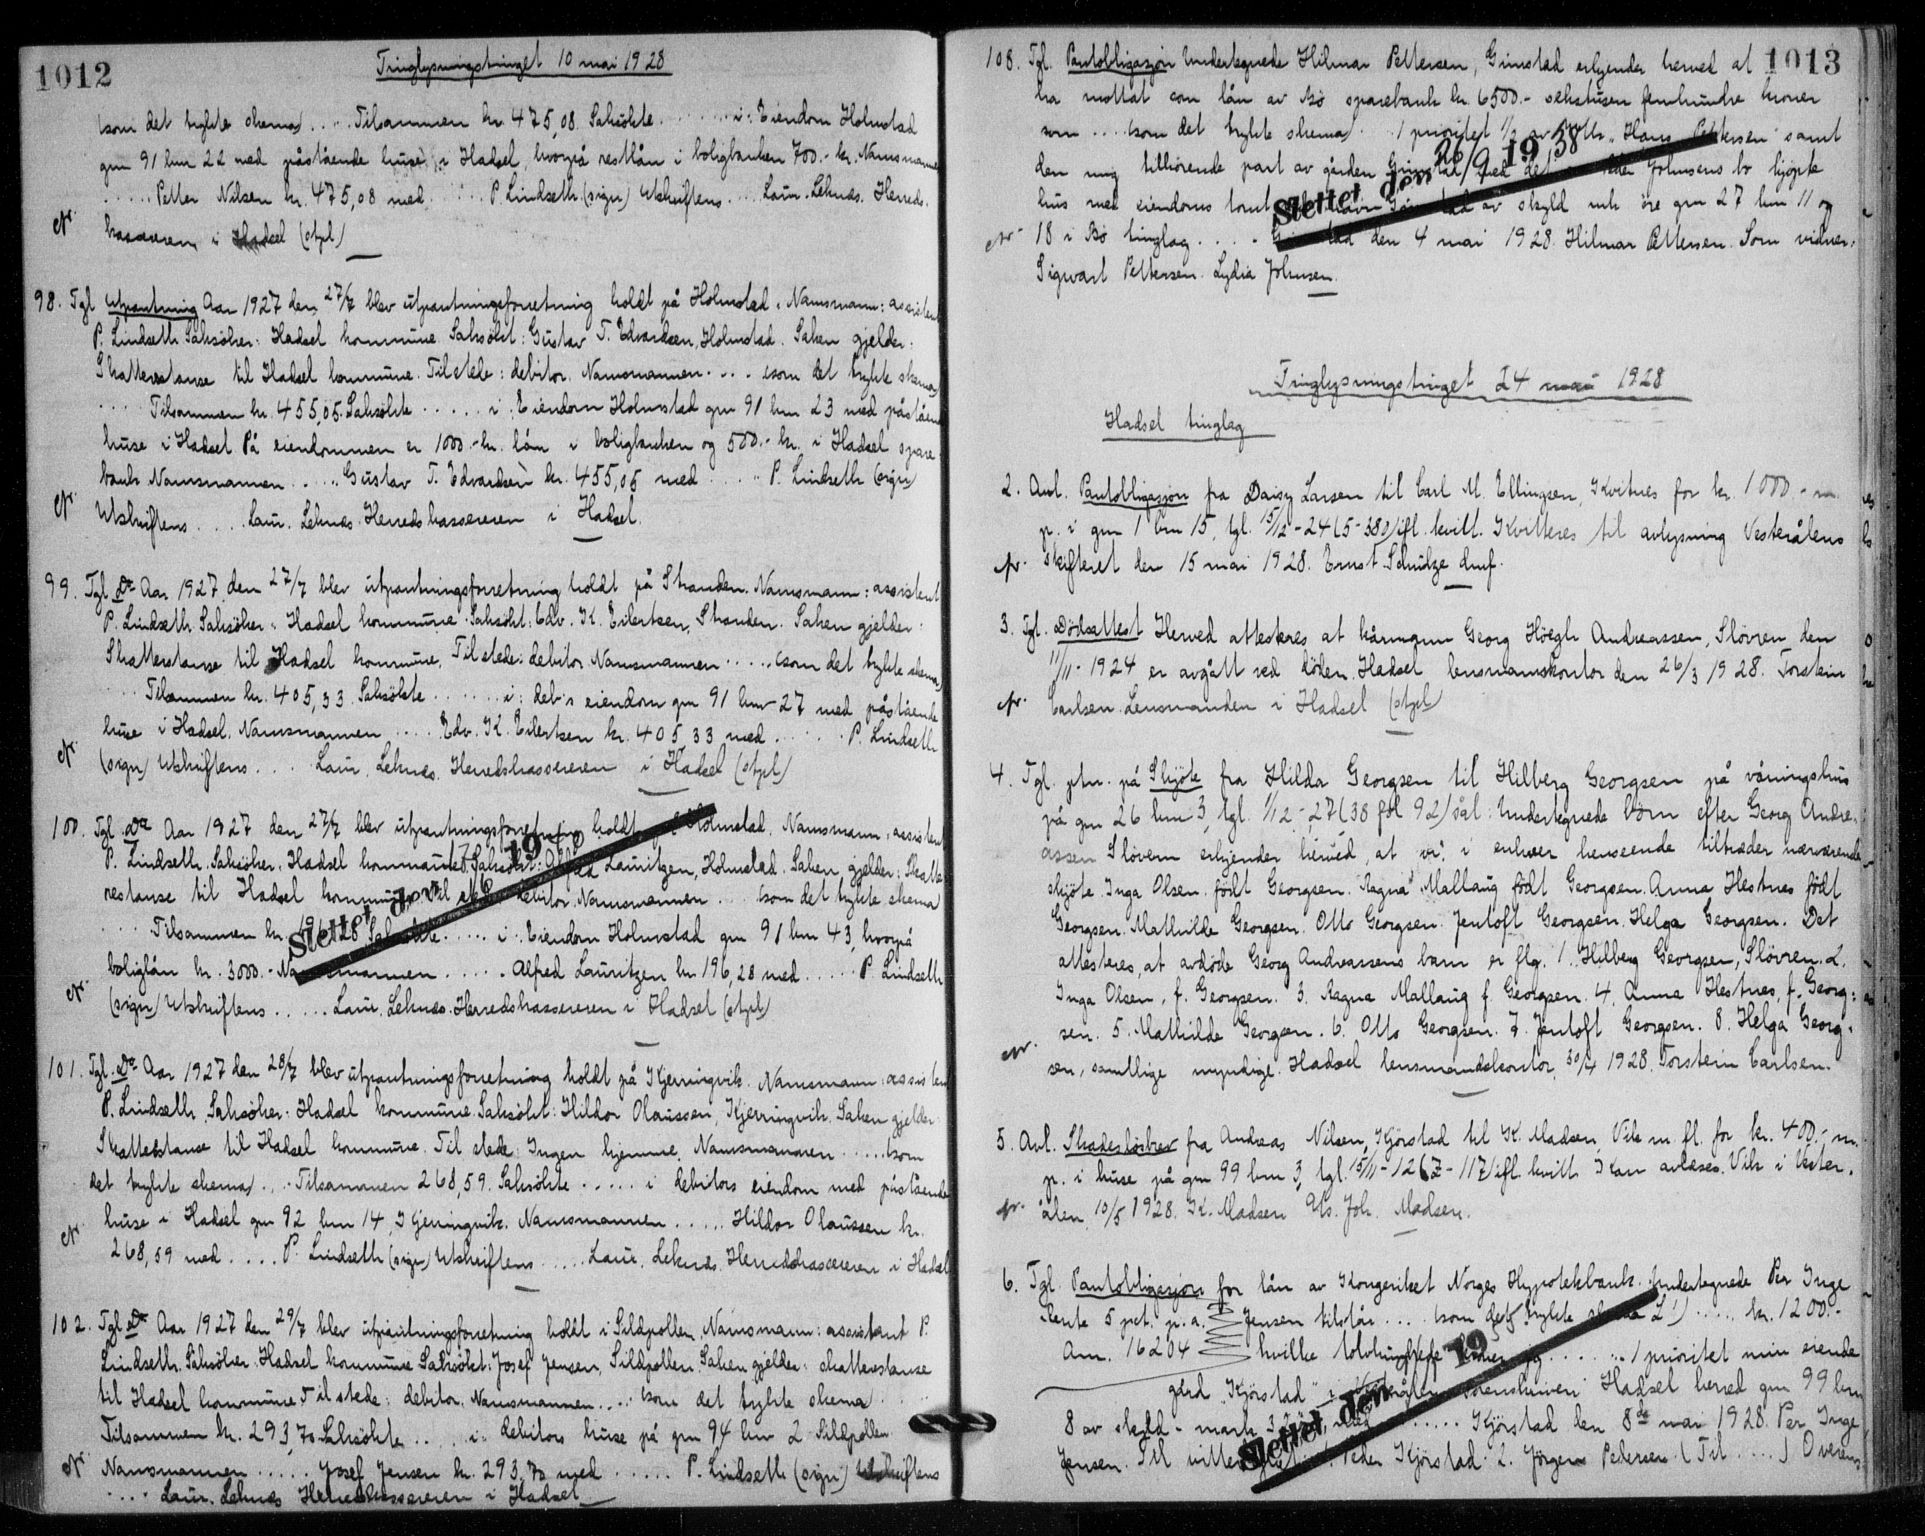 1012
Tinglysningstinget 10 mai 1928
(som det trykte skema) ..... Tilsammen kr. 475,08. Saksökte ........ i: Eiendom Holmstad
gnr 91 bnr 22 med påstående huse i Hadsel, hvorpå restlån i boligbanken 700.- kr. Namsmannen
..... Petter Nilsen kr. 475,08 med ..... P. Lindseth (sign) Utskriftens .... Laur. Leknes. Herreds-
kassereren i Hadsel (stpl)
98. Tgl. Utpantning Aar 1927 den 27/7 blev utpantningsforretning holdt på Holmstad. Namsmann: assistent
P. Lindseth Saksöker: Hadsel kommune. Saksökt: Gustav T. Edvardsen, Holmstad. Saken gjelder:
Skatterestanse til Hadsel kommune. Tilstede: debitor. Namsmannen .... (som det trykte skema)
..... Tilsammen kr. 455,05. Saksökte ...... i: Eiendom Holmstad gnr 91 bnr 23 med påstående
huse i Hadsel På eiendommen er 1000.- kr. lån i boligbanken og 500.- kr. i Hadsel spare-
bank. Namsmannen ..... Gustav T. Edvardsen kr. 455,05 med ..... P. Lindseth (sign)
Utskriftens ..... Laur. Leknes. Herredskassereren i Hadsel.
99. Tgl. do Aar 1927 den 27/7 blev utpantningsforretning holdt på Stranden. Namsmann: assistent
P. Lindseth. Saksöker: Hadsel kommune. Saksökt: Edv. K. Eilertsen, Stranden. Saken gjelder:
Skatterestanse til Hadsel kommune. Tilstede: debitor. Namsmannen ..... (som det trykte skema)
..... Tilsammen kr. 405,33 Saksökte ....... i: deb's eiendom gnr 91 bnr 27 med påstående
huse i Hadsel. Namsmannen ..... Edv. K. Eilertsen kr. 405,33 med ...... P. Lindseth
(sign) Utskriftens .... Laur. Leknes. Herredskassereren i Hadsel (stpl)
100. Tgl. do Aar 1927 den 27/7 blev utpantningsforretning holdt på Holmstad. Namsmann: assistent
P. Lindseth. Saksöker: Hadsel kommune. Saksökt: Alfred Lauritzen, Holmstad. Saken gjelder: Skatte-
restanse til Hadsel kommune. Tilstede: debitor. Namsmannen .... (som det trykte skema
.... Tilsammen kr. 196,28 Saksökte ..... i: Eiendom Holmstad gnr 91 bnr 43, hvorpå
boliglån kr. 3000.- Namsmannen ..... Alfred Lauritzen kr 196,28 med ..... P. Lindseth
(sign) Utskriftens ..... Laur. Leknes. Herredskassereren i Hadsel (stpl)
Slettet den 19
101. Tgl. do Aar 1927 den 28/7 blev utpantningsforretning holdt på Kjerringvik. Namsmann: assistent
P. Lindseth. Saksöker: Hadsel kommune. Saksökt: Hildor Olaussen, Kjerringvik. Saken gjelder:
Skatterestanse til Hadsel kommune. Til stede: Ingen hjemme. Namsmannen ..... (som
det trykte skema) .... Tilsammen 268,59. Saksökte ..... i debitors eiendom med påstående
huse i Hadsel gnr 92 bnr 14, Kjerringvik. Namsmannen ..... Hildor Olaussen kr.
268,59 med .... P. Lindseth (sign) Utskriftens ..... Laur. Leknes. Herredskassereren i Hadsel
102. Tgl. do Aar 1927 den 29/7 blev utpantningsforretning holdt i Sildpollen. Namsmann: assistent P.
Lindseth. Saksöker: Hadsel kommune Saksökt: Josef Jensen, Sildpollen. Saken gjelder: skatterestanse
til Hadsel kommune Tilstede: debitor. Namsmannen .... (som det trykte skema
Tilsammen kr. 293,70 Saksökte .... i: debitors huse på gnr 94 bnr 2 Sildpollen
Namsmannen ..... Josef Jensen kr. 293,70 med ...... P. Lindseth (sign) Utskriftens
.... Laur. Leknes Herredskassereren i Hadsel
1013
108. Tgl. Pantobligasjon Undertegnede Hilmar Pettersen, Grimstad erkjender herved at
ha mottat som lån av Bö sparebank kr. 6500.- sekstusen femhundre kroner
som .... (som det trykte skema) .... 1 prioritet 1/2 av "Hans Pettersen" samt
den mig tilhörende part av gården Grimstad, med Johnsens bo kjöpte
hus med eiendoms tomt av skyld öre gnr 27 bnr 11 og
18 i Bö tinglag .... Grimstad den 4 mai 1928. Hilmar Pettersen. Som vidner:
Sigvart Pettersen. Lydia Johnsen.
Slettet den 26/9 1938
Tinglysningstinget 24 mai 1928
Hadsel tinglag
2. Avl. Pantobligasjon fra Daisy Larsen til Carl M. Ellingsen, Kvitnes for kr. 1000.- m
p. i gnr 1 bnr 15, tgl. 15/12-24 (5-380) ifl. kvitt. Kvitteres til avlysning Vesterålens
skifteret den 15 mai 1928. Ernst Schulze dmf.
3. Tgl. Dödsattest Herved attesteres at kårmann Georg Höegh Andreassen, Slövren den
11/11-1924 er avgått ved döden. Hadsel lensmannskontor den 26/3 1928. Torstein
Carlsen. Lensmanden i Hadsel (stpl)
4. Tgl. ptn. på Skjöte fra Hilda Georgsen til Hilberg Georgsen på våningshus
på gnr 26 bnr 3, tgl. 1/12-27 (38 fol 92) sål: Undertegnede börn efter Georg Andre-
assen Slövern erkjender herved, at vi i enhver henseende tiltræder nærværende
skjöte. Inga Olsen födt Georgsen. Ragna Mallaug födt Georgsen. Anna Hestnes födt
Georgsen. Mathilde Georgsen. Otto Georgsen. Jentoft Georgsen. Helga Georgsen. Det
attesteres, at avdöde Georg Andreassens barn er flg. 1. Hilberg Georgsen, Slövren. 2.
Inga Olsen, f. Georgsen. 3. Ragna Mallaug f. Georgsen. 4. Anna Hestnes, f. Georg-
sen. 5. Mathilde Georgsen. 6. Otto Georgsen. 7. Jentoft Georgsen. 8. Helga Georg-
sen, samtlige myndige. Hadsel lensmandskontor, 30/4 1928. Torstein Carlsen.
5. Avl. Skadeslösbrev fra Andreas Nilsen, Kjörstad til K. Madsen, Vik m. fl. for kr. 400.- m.
p. i huse på gnr 99 bnr 3, tgl. 15/11-12 (7-117) ifl. kvitt. Kan avlæses. Vik i Vester-
ålen, 10/5 1928. K. Madsen Joh. Madsen.
6. Tgl. Pantobligasjon for lån av Kongeriket Norges Hypotekbank. Undertegnede Per Inge
Rente 5 pct. p.a. Jensen tilstår .... (som det trykte skema L1) ..... kr. 1200.-
Am. 16204 hvilke tolvhundrede kroner ...... 1 prioritet min eiende
gård "Kjörstad" i Vesterålen sorenskriveri Hadsel herred gnr 99 bnr
8 av skyld - mark ..... Kjörstad den 8de mai 1928. Per Inge
Jensen. Til vitterlighet: 1. Peder Kjörstad. 2. Jörgen Pedersen. (Til .....) Overens-
Slettet den 19